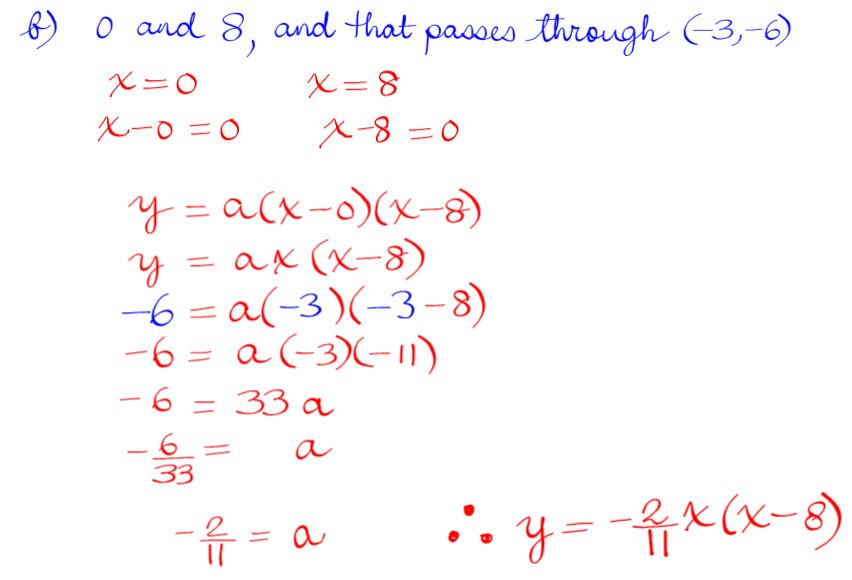 b) 0 and 8, and that passes through (-3,-6)
x=0 x=8
x-0=0 x-8=0
y = a(x-0)(x-8)
y = ax(x-8)
-6 = a(-3)(-3-8)
-6 = a(-3)(-11)
-6 = 33a
-6/33 = a
-2/11 = a ∴ y = -2/11 x(x-8)